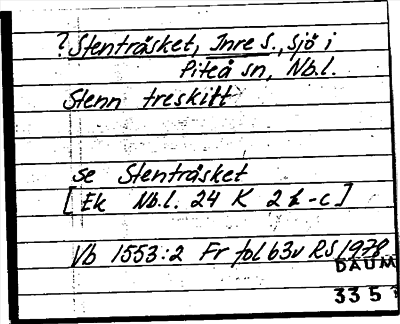 ? Stenträsket, Inre S., sjö i
Piteå sn, Nb.l.
Stenn treskitt
se Stenträsket
[Ek Nb.l. 24 K 2 -c]
Vb 1553:2 Fr fol 63v RS 1978
DAUM
33 5